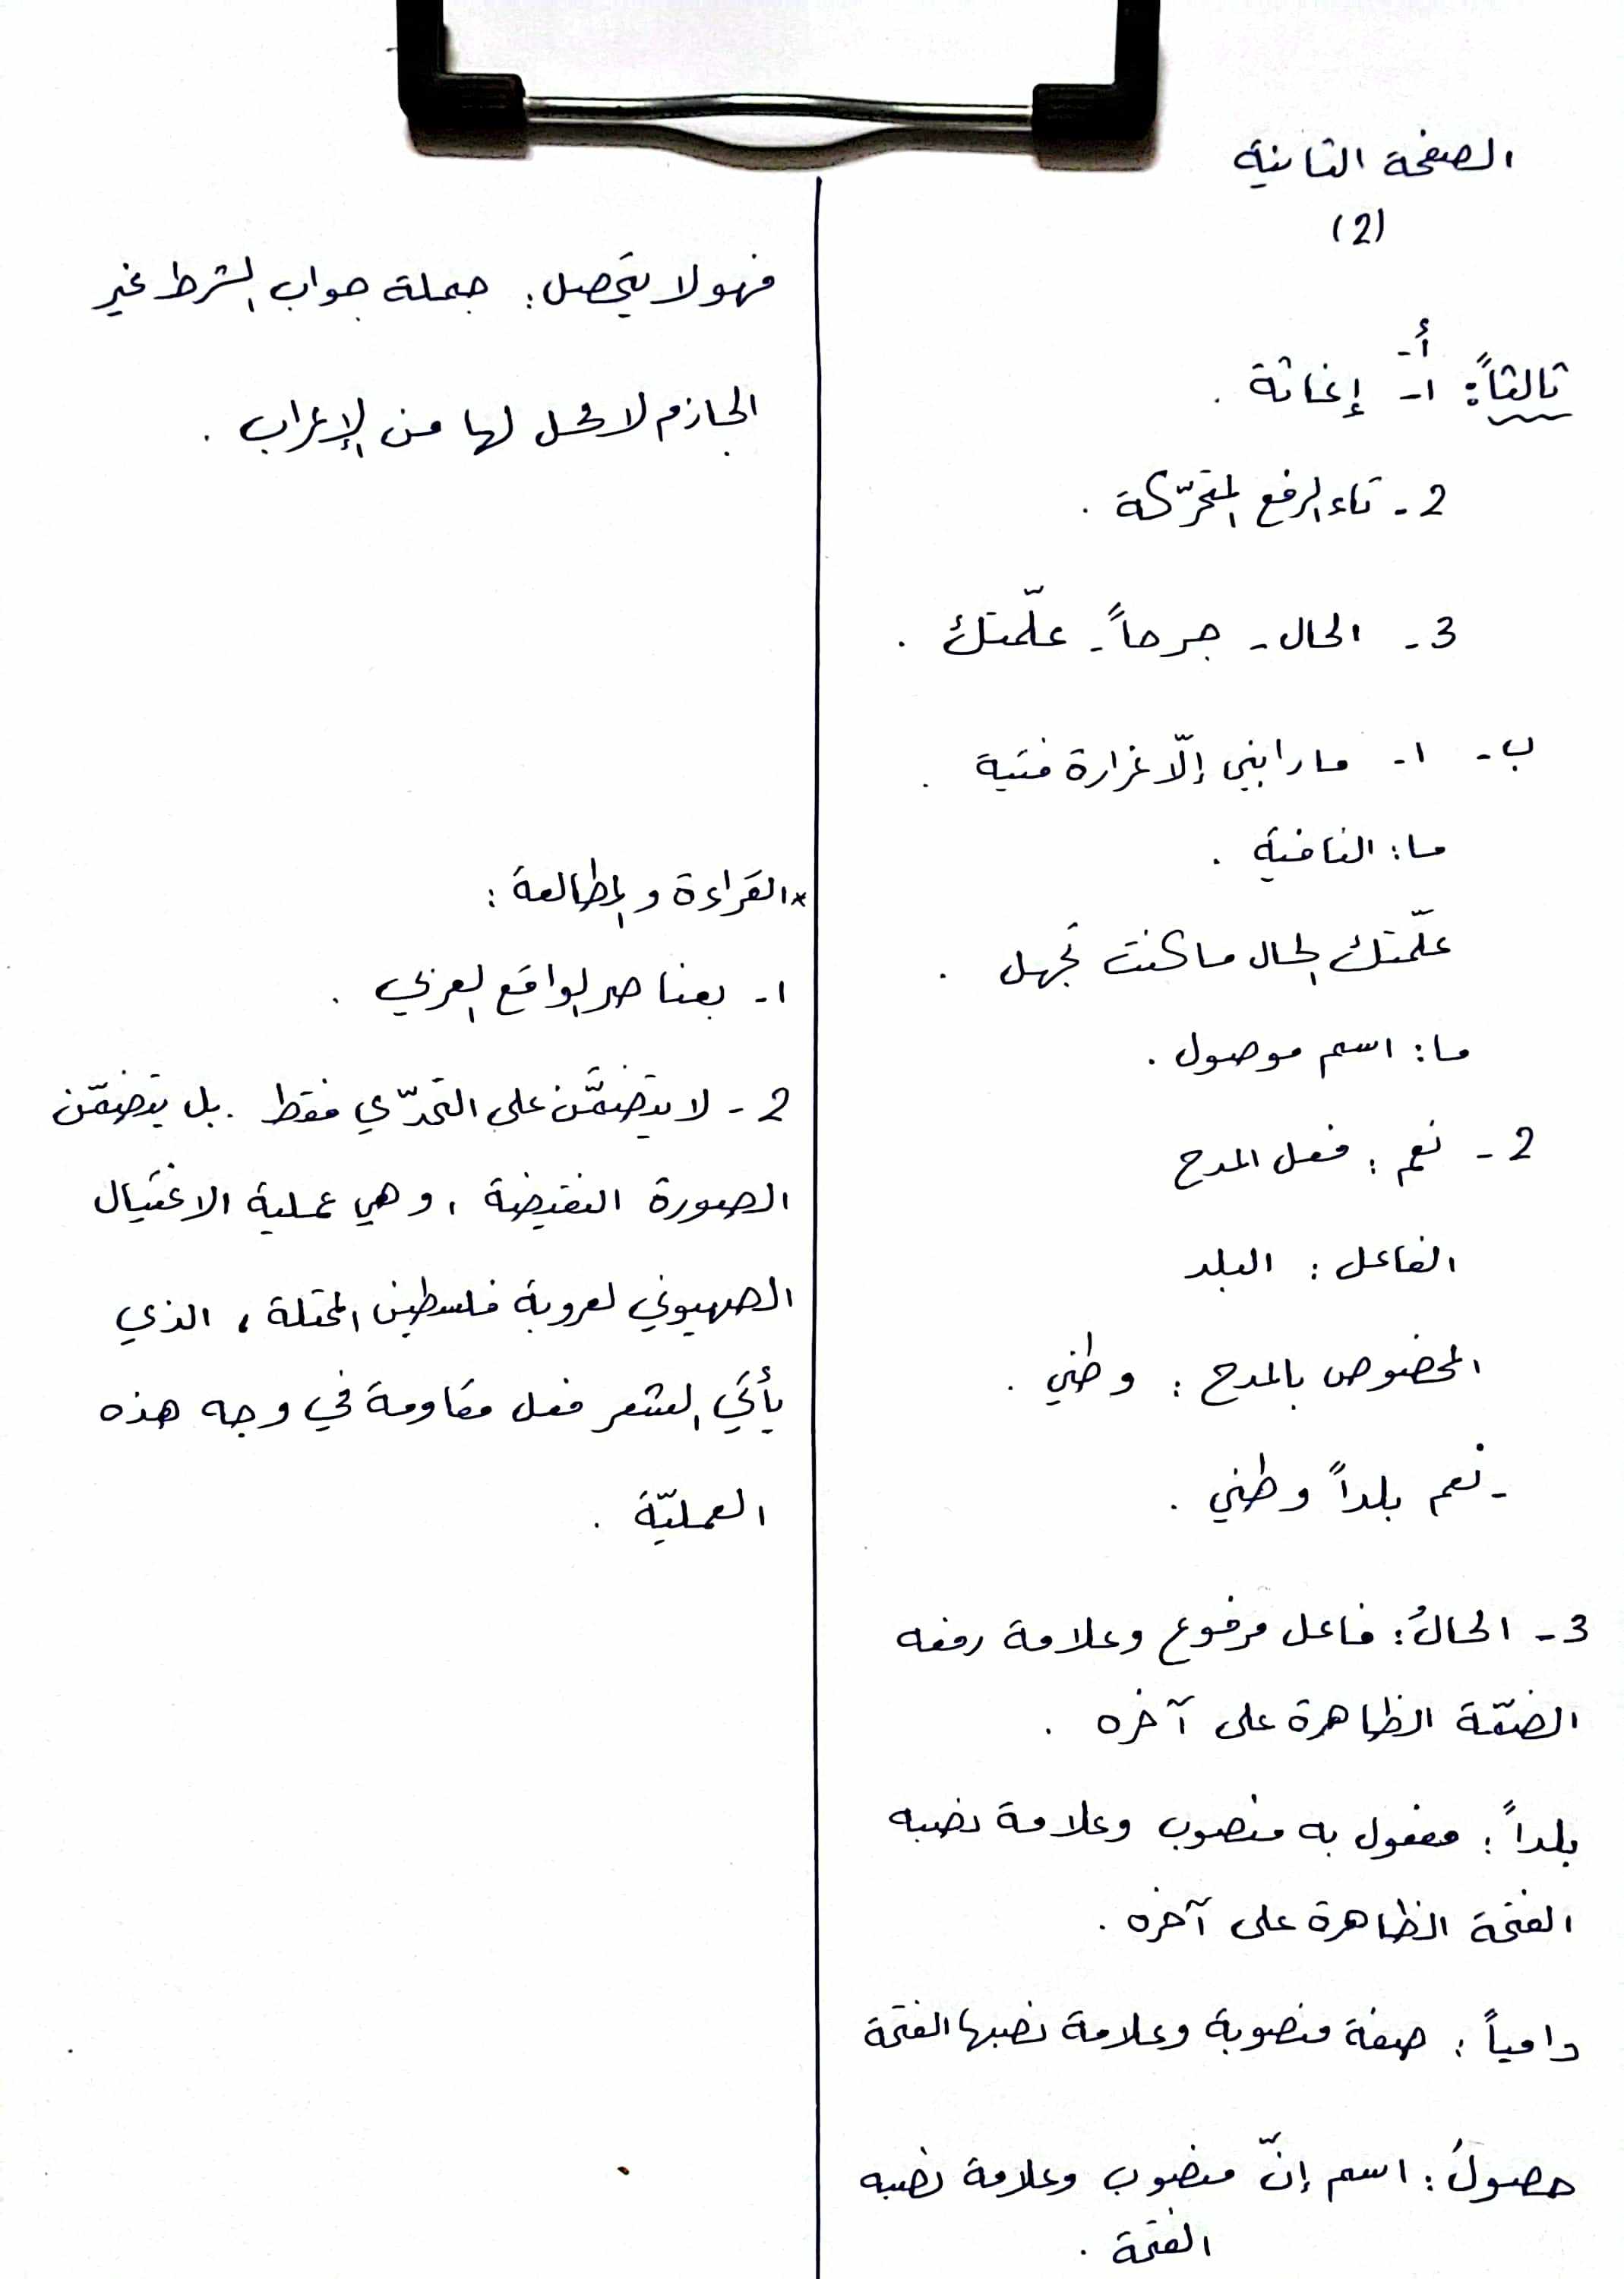 الصفحة الثانية
(2)
أ-
ثالثاً: 1- إغاثة .
2- تاء الرفع المتحرّكة .
3- الحال - جرحاً - علّمتك .
ب- 1- ما رابني إلّا غرارة فتية .
ما: النافية .
علّمتك الحال ما كنت تجهل .
ما: اسم موصول .
2- نعم : فعل المدح
الفاعل : البلد
المخصوص بالمدح : وطني .
- نعم بلداً وطني .
3- الحالُ: فاعل مرفوع وعلامة رفعه
الضمّة الظاهرة على آخره .
بلداً : مفعول به منصوب وعلامة نصبه
الفتحة الظاهرة على آخره .
دامياً : صفة منصوبة وعلامة نصبها الفتحة
حصولَ : اسم إنّ منصوب وعلامة نصبه
الفتحة .
فهو لا يتحصل : جملة جواب الشرط غير
الجازم لا محل لها من الإعراب .
*القراءة والمطالعة :
1- بعناصر الواقع العربي .
2- لا يتضمَّن على التحدّي فقط . بل يتضمّن
الصورة النقيضة ، وهي عملية الاغتيال
الصهيوني لعروبة فلسطين المحتلة ، الذي
يأتي الشعر فعل مقاومة في وجه هذه
العمليّة .